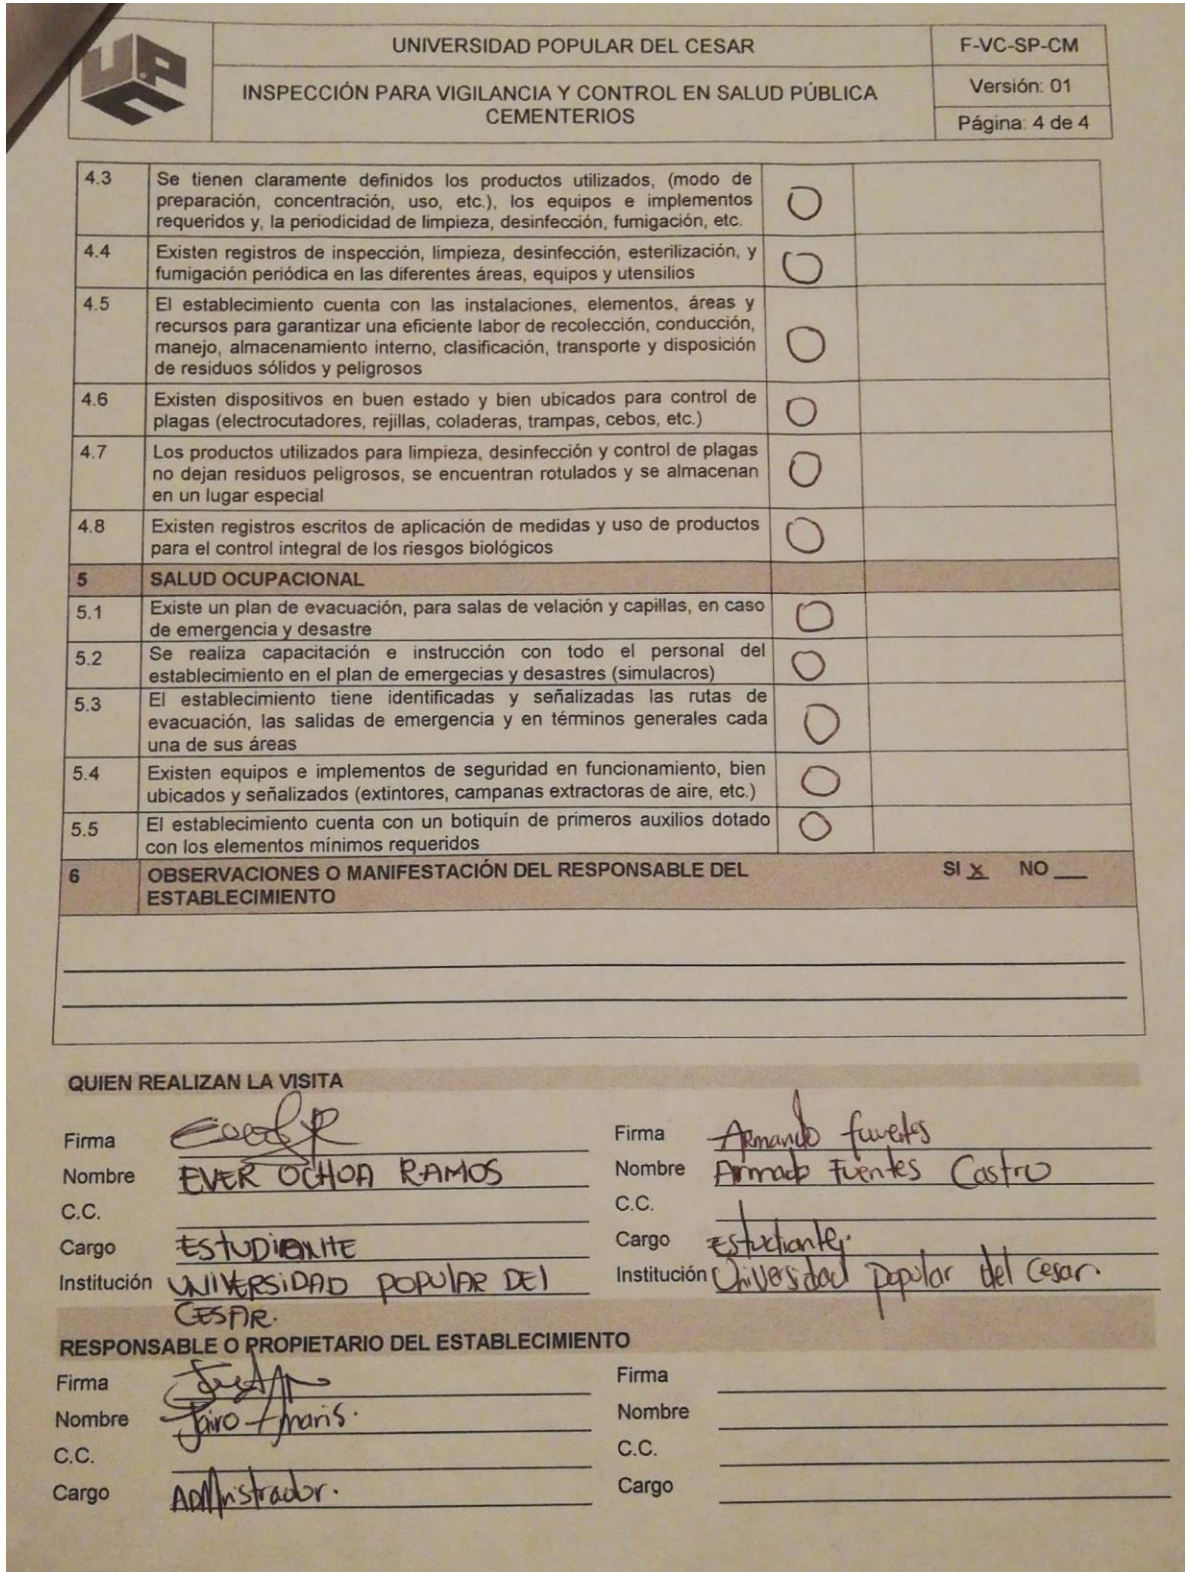 U.P.C
UNIVERSIDAD POPULAR DEL CESAR
F-VC-SP-CM
INSPECCIÓN PARA VIGILANCIA Y CONTROL EN SALUD PÚBLICA
CEMENTERIOS
Versión: 01
Página: 4 de 4
4.3 Se tienen claramente definidos los productos utilizados, (modo de
preparación, concentración, uso, etc.), los equipos e implementos
requeridos y, la periodicidad de limpieza, desinfección, fumigación, etc.
O
4.4 Existen registros de inspección, limpieza, desinfección, esterilización, y
fumigación periódica en las diferentes áreas, equipos y utensilios
O
4.5 El establecimiento cuenta con las instalaciones, elementos, áreas y
recursos para garantizar una eficiente labor de recolección, conducción,
manejo, almacenamiento interno, clasificación, transporte y disposición
de residuos sólidos y peligrosos
O
4.6 Existen dispositivos en buen estado y bien ubicados para control de
plagas (electrocutadores, rejillas, coladeras, trampas, cebos, etc.)
O
4.7 Los productos utilizados para limpieza, desinfección y control de plagas
no dejan residuos peligrosos, se encuentran rotulados y se almacenan
en un lugar especial
O
4.8 Existen registros escritos de aplicación de medidas y uso de productos
para el control integral de los riesgos biológicos
O
5 SALUD OCUPACIONAL
5.1 Existe un plan de evacuación, para salas de velación y capillas, en caso
de emergencia y desastre
O
5.2 Se realiza capacitación e instrucción con todo el personal del
establecimiento en el plan de emergecias y desastres (simulacros)
O
5.3 El establecimiento tiene identificadas y señalizadas las rutas de
evacuación, las salidas de emergencia y en términos generales cada
una de sus áreas
O
5.4 Existen equipos e implementos de seguridad en funcionamiento, bien
ubicados y señalizados (extintores, campanas extractoras de aire, etc.)
O
5.5 El establecimiento cuenta con un botiquín de primeros auxilios dotado
con los elementos mínimos requeridos
O
6 OBSERVACIONES O MANIFESTACIÓN DEL RESPONSABLE DEL
ESTABLECIMIENTO
SI x NO ___
QUIEN REALIZAN LA VISITA
Firma
Nombre EVER OCHOA RAMOS
C.C.
Cargo ESTUDIANTE
Institución UNIVERSIDAD POPULAR DEL
CESAR.
Firma Armando fuentes
Nombre Armado Fuentes Castro
C.C.
Cargo Estudiante.
Institución Universidad popular del Cesar.
RESPONSABLE O PROPIETARIO DEL ESTABLECIMIENTO
Firma
Nombre Jairo Amaris.
C.C.
Cargo ADMinistrador.
Firma
Nombre
C.C.
Cargo